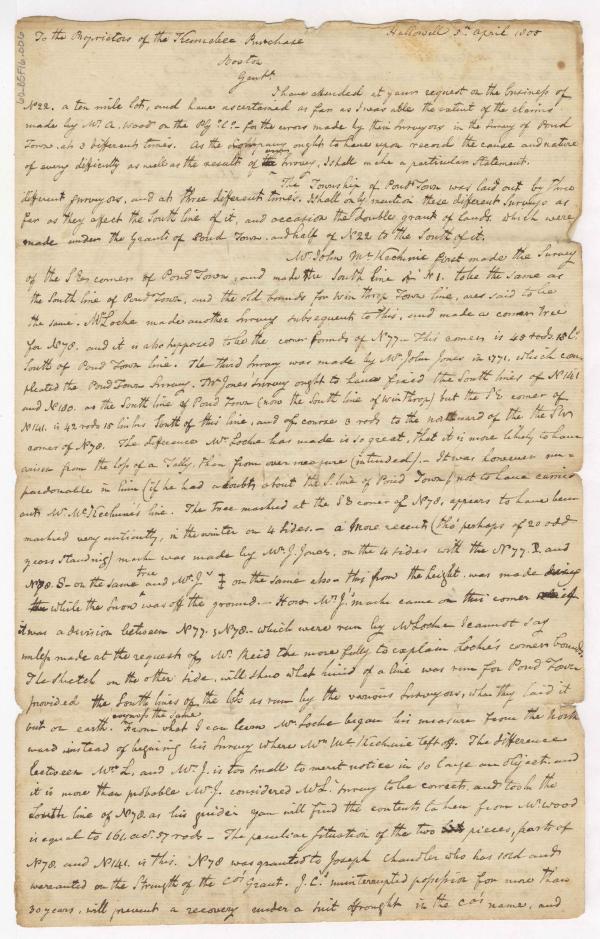 60-85F16.006
Hallowell 5th April 1800
To the Proprietors of the Kennebec Purchase
Boston
Gentn
I have attended at your request on the business of
No 22. a ten mile lots, and have ascertained as far as I was able the extent of the claims
made by Mr. A. Wood on the Plg Co. for the errors made by their Surveyors in the Survey of Pond
Town at 3 different times. As the Company ought to have upon record the cause and nature
of every difficulty as well as the result of the Survey, I shall make a particular Statement.
The Township of Pond Town was laid out by three
different surveyors, and at three different times. I shall only mention these different Surveys as
far as they affect the South line of it, and occasion the double grant of Lands, which were
made under the Grants of Pond Town, and half of No 22 to the South of it.
Mr. John McKechnie first made the Survey
of the S Es corner of Pond Town, and made the South line of No 1. to be the same as
the South line of Pond Town, and the old bounds for Winthrop Town line, are said to be
the same. Mr Loche made another Survey subsequent to this, and made a corner tree
for No 78. and it is also supposed to be the corner bounds of No 77. This corner is 45 rods 15 L
South of Pond Town line. The third Survey was made by Mr. John Jones in 1771. which com
pleted the Pond Town Survey. Mr Jones' survey ought to have fixed the South lines of No 141
and No 180. as the South line of Pond Town (now the South line of Winthrop) but the S E corner of
No 141. is 42 rods 15 links South of this line, and of course 3 rods to the northward of the the S W
corner of No 78. The difference Mr. Loche has made is so great, that it is more likely to have
arisen from the loss of a Tally, than from over measure (intended). - It was however un-
pardonable in him (if he had a doubt about the S. line of Pond Town) not to have carried
out Mr. McKechnie's line. The tree marked at the S E corner of No 78, appears to have been
marked very anciently, in the winter on 4 sides. - a more recent (tho' perhaps of 20 odd
years standing) mark was made by Mr. J. Jones, on the 4 sides with the No 77. P. and
No 78. S - on the same tree and Mr. J. on the same also - this from the height, was made
while the Snow was off the ground. - How Mr. J's mark came on this corner if
it was a division between No 77. & No 78 - which were run by Mr Loche I cannot say
unless made at the request of Mr. Reid the more fully to explain Loche's corner bounds.
The sketch on the other side, will show what kind of a line was run for Pond Town
provided the South lines of the lots as run by the various Surveyors, when they laid it
out on earth. From what I can learn Mr Loche began his measure from the North
ward instead of beginning his Survey where Mr McKechnie left off. The difference
between Mr. L. and Mr. J. is too small to merit notice in so large an object, and
it is more than probable Mr. J. considered Mr L's survey to be correct, and took the
South line of No 78. as his guide. You will find the contents taken from Mr. Wood
is equal to 161 acs. 57 rods - The peculiar situation of the two pieces, parts of
No 78. and No 141. is this. No 78 was granted to Joseph Chandler who has sold and
warranted on the Strength of the Co's Grant. J. C's uninterrupted possession for more than
30 years, will prevent a recovery under a suit brought in the Co's name, and